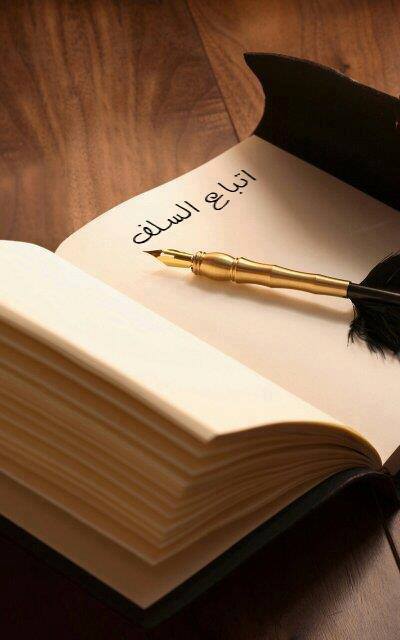 اتباع السلف